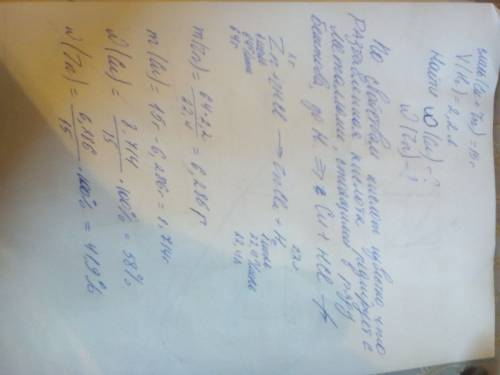 m(Cu, Zn) = 15 г
V(H₂) = 2,2 л
Найти ω(Cu) - ?
ω(Zn) - ?
По свойствам кислот известно, что
разбавленная кислота реагирует с
металлами, стоящими в ряду
до H. ⇒ Cu + HCl ↛
Zn + 2HCl → ZnCl₂ + H₂
2,2 л
1 моль
22,4 л
m(Zn) = 64·2,2 / 22,4 = 6,286 г
m(Cu) = 15 г - 6,286 г = 8,714 г
ω(Cu) = 8.714 / 15 · 100% = 58%
ω(Zn) = 6,286 / 15 · 100% = 41,9%